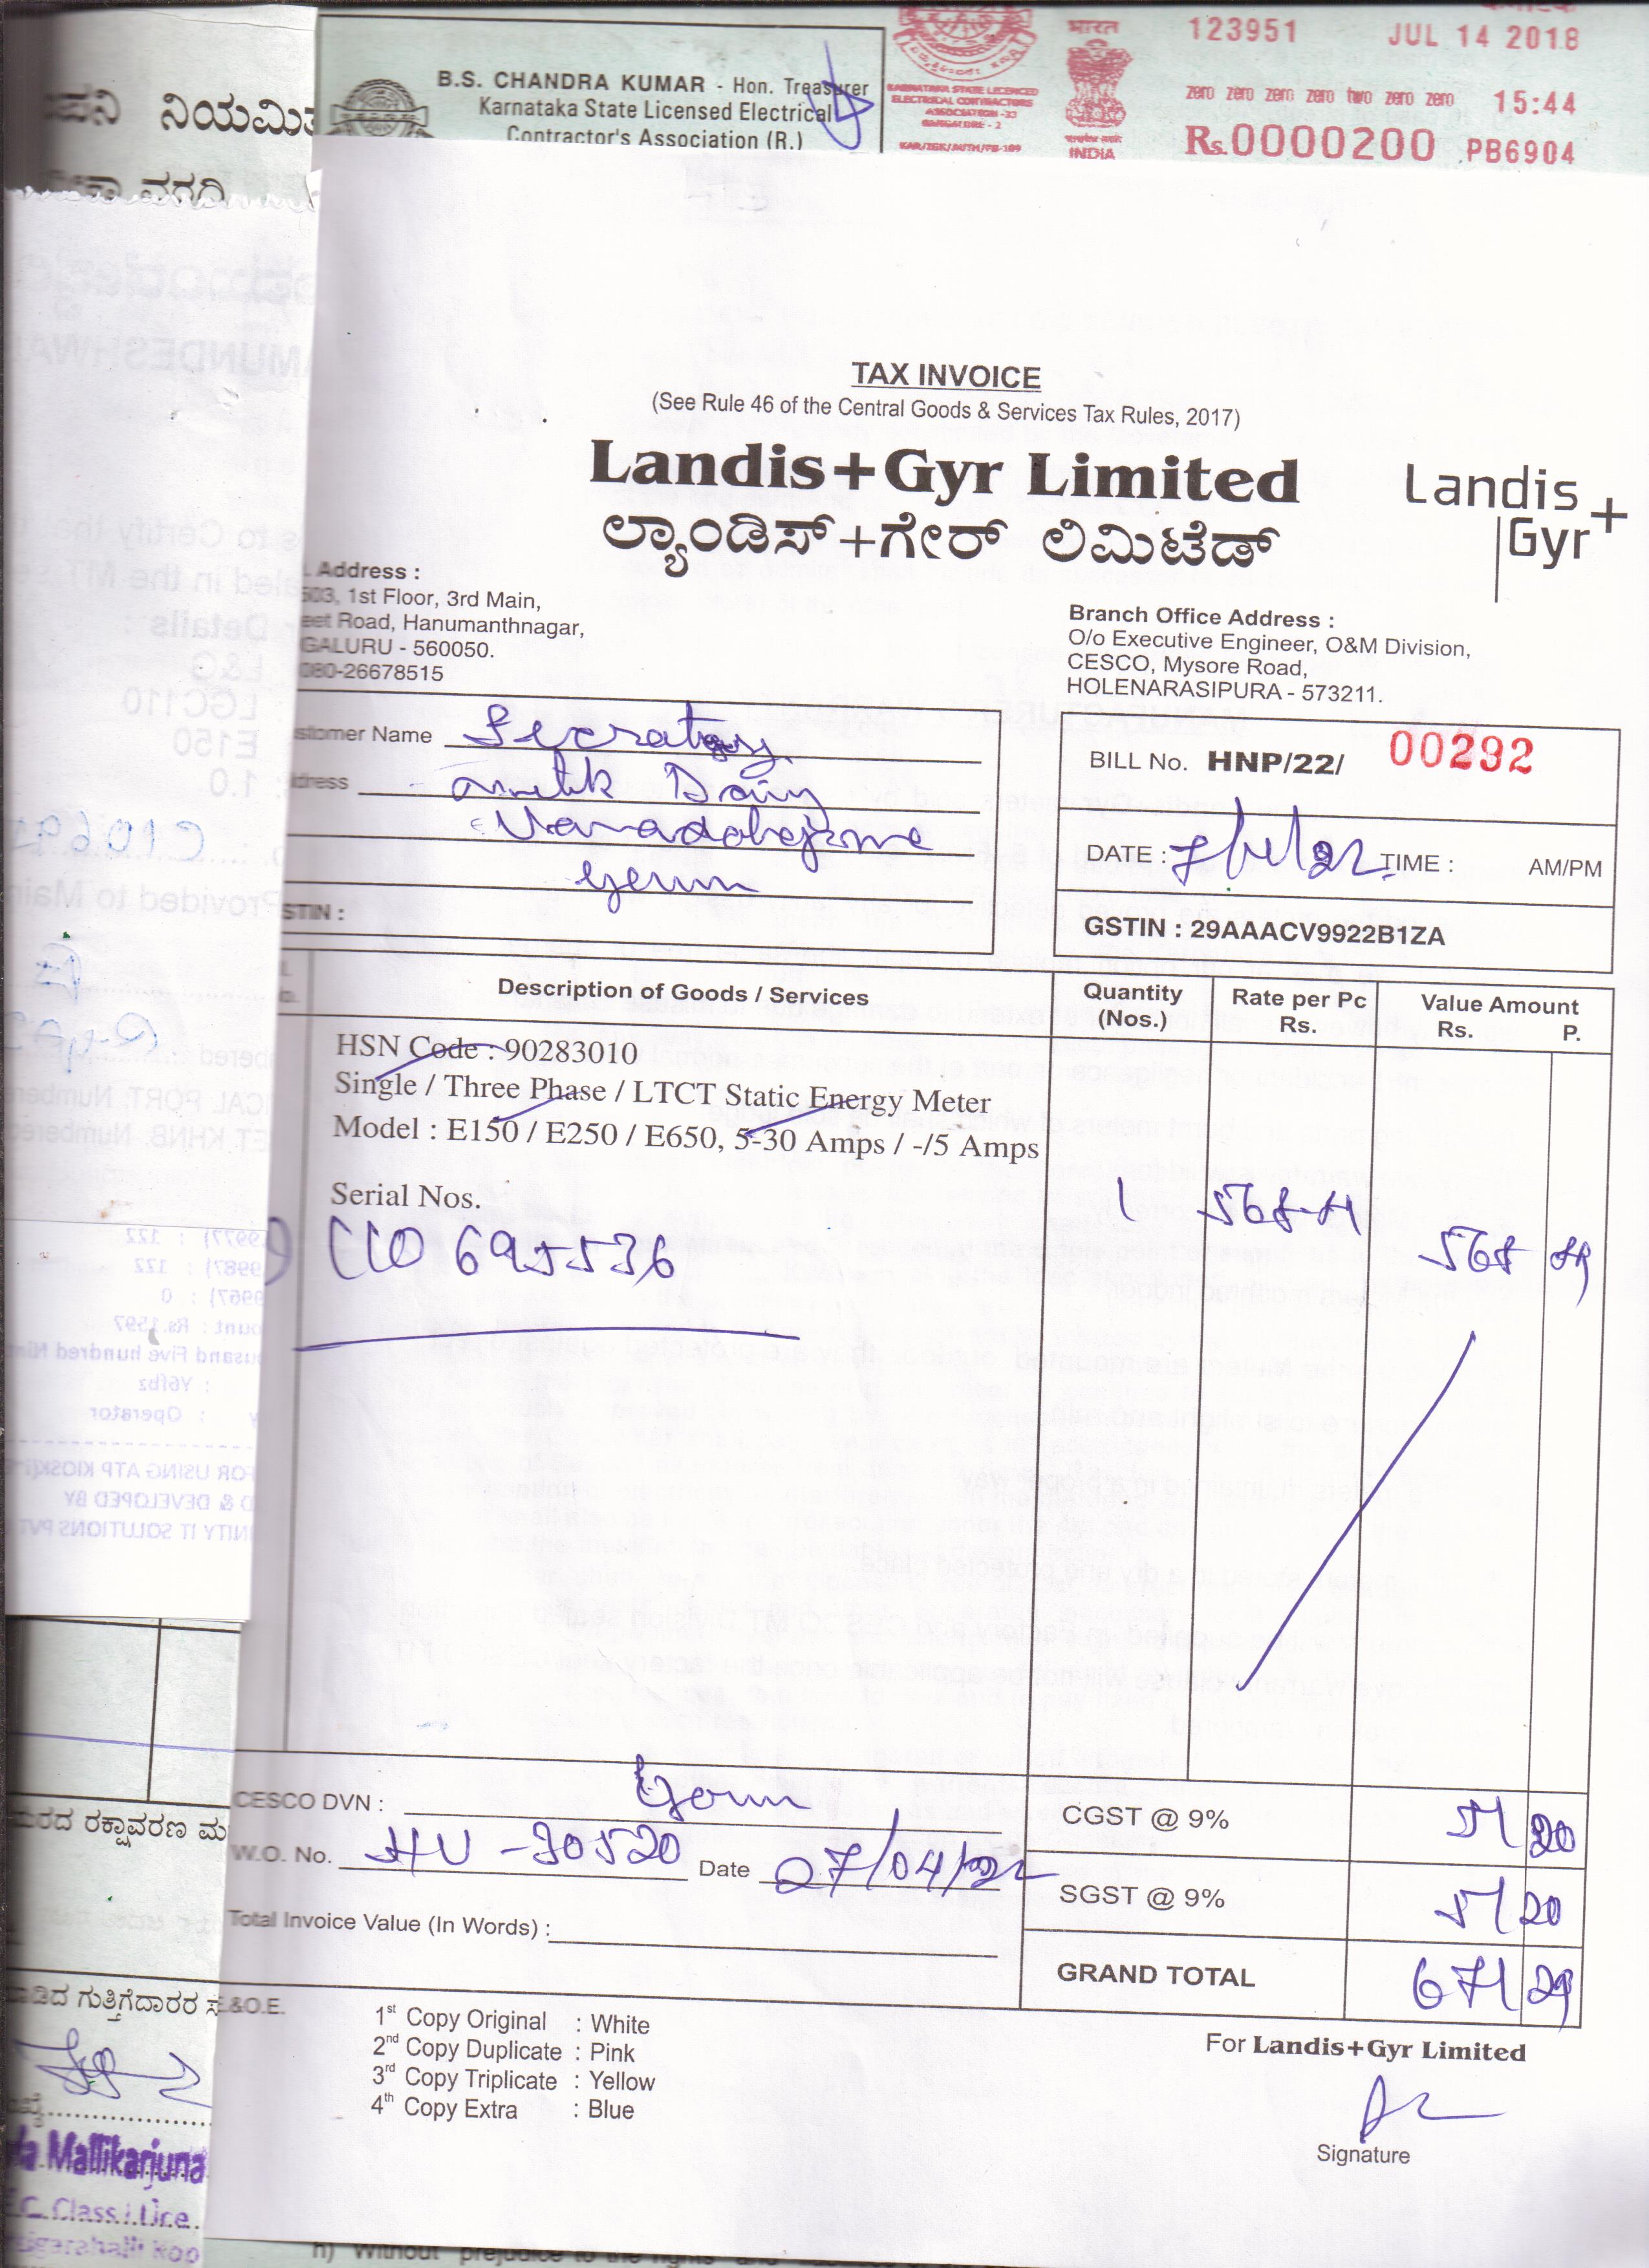 B.S. CHANDRA KUMAR - Hon. Treasurer
Karnataka State Licensed Electrical
Contractor's Association (R.)
KARNATAKA STATE LICENCED
ELECTRICAL CONTRACTORS
ASSOCIATION
BANGALORE - 2
भारत
INDIA
123951 JUL 14 2018
zero zero zero zero two zero zero 15:44
Rs.0000200 PB6904
ನಿಯಮಿತ
ವರದಿ
TAX INVOICE
(See Rule 46 of the Central Goods & Services Tax Rules, 2017)
Landis+Gyr Limited
ಲ್ಯಾಂಡಿಸ್+ಗೇರ್ ಲಿಮಿಟೆಡ್
Landis+
Gyr
Address :
503, 1st Floor, 3rd Main,
eet Road, Hanumanthnagar,
GALURU - 560050.
080-26678515
Branch Office Address :
O/o Executive Engineer, O&M Division,
CESCO, Mysore Road,
HOLENARASIPURA - 573211.
stomer Name Secratory
dress Dairy
STIN :
BILL No. HNP/22/ 00292
DATE : TIME : AM/PM
GSTIN : 29AAACV9922B1ZA
Description of Goods / Services Quantity (Nos.) Rate per Pc Rs. Value Amount Rs. P.
HSN Code : 90283010
Single / Three Phase / LTCT Static Energy Meter
Model : E150 / E250 / E650, 5-30 Amps / -/5 Amps
Serial Nos.
C10 695536 1 568-89 568 89
CESCO DVN :
W.O. No. 30520 Date 27/04/22
Total Invoice Value (In Words) :
CGST @ 9% 51 20
SGST @ 9% 51 20
GRAND TOTAL 671 29
&O.E.
1st Copy Original : White
2nd Copy Duplicate : Pink
3rd Copy Triplicate : Yellow
4th Copy Extra : Blue
For Landis+Gyr Limited
Signature
ರಕ್ಷಾವರಣ
ಗುತ್ತಿಗೆದಾರರ
Mallikarjuna
Class
h) Without prejudice to the rights and